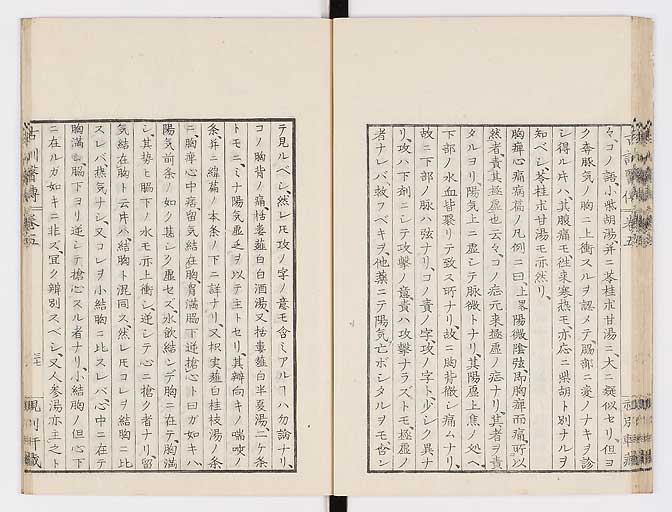 々コノ語、小柴胡湯并ニ苓桂朮甘湯ニ大ニ疑似セリ、但ヨ
ク奔豚気ノ胸ニ上衝スルヲ認メテ臓部ニ変ノナキヲ診
シ得ル片ハ、其腹痛モ往来寒熱モ、亦応ニ柴胡ト別ナルヲ
知ベシ、苓桂朮甘湯モ亦然リ、
胸痺心痛病篇ノ凡例ニ曰、上畧陽微陰弦即胸痺而痛、所以
然者責其極虚也云々、コノ症元来極虚ノ症ナリ、其者ヲ責
タルヨリ、陽気上ニ虚シテ脉微トナリ、其陽虚上焦ノ処ヘ
下部ノ水血皆聚リテ致ス所ナリ、故ニ胸背徹シ痛ムナリ、
故ニ下部ノ脉ハ弦ナリ、コノ責ノ字攻ノ字ト少シク異ナ
リ、攻ハ下剤ニシテ攻撃ノ意、責ハ攻撃ナラズトモ、極虚ノ
者ナレバ救フベキヲ、他薬ニテ陽気亡ボシタルヲモ含ン
テ見ルベシ、然レ圧攻ノ字ノ意モ含ミアルヿハ勿論ナリ、
コノ胸背ノ痛、栝蔞薤白白酒湯、又栝蔞薤白半夏湯、二ケ条
トモニ、ミナ陽気虚乏ヲ以テ主トセリ、其辨向キノ喘咳ノ
条、并ニ緯篇ノ本条ノ下ニ詳ナリ、又枳実薤白桂枝湯ノ条
ニ、胸痺心中痞留気結在胸、胸満脇下逆搶心ト曰ガ如キハ、
陽気前条ノ如ク甚シク虚セズ、水飲結ンデ胸ニ在テ、胸満
シ、其勢ヒ脇下ノ水モ亦上衝シ、逆シテ心ニ搶ク者ナリ、留
気結在胸ト云片ハ、結胸ト混同ス、然レ圧コレヲ結胸ニ比
スレバ、熱気ナシ、又コレヲ小結胸ニ比スレバ、心中ニ在テ
胸満シ、脇下ヨリ逆シテ搶心スル者ナリ、小結胸ノ但心下
ニ在ルガ如キニ非ズ、宜ク辨別スベシ、又人参湯亦主之ト
巻五